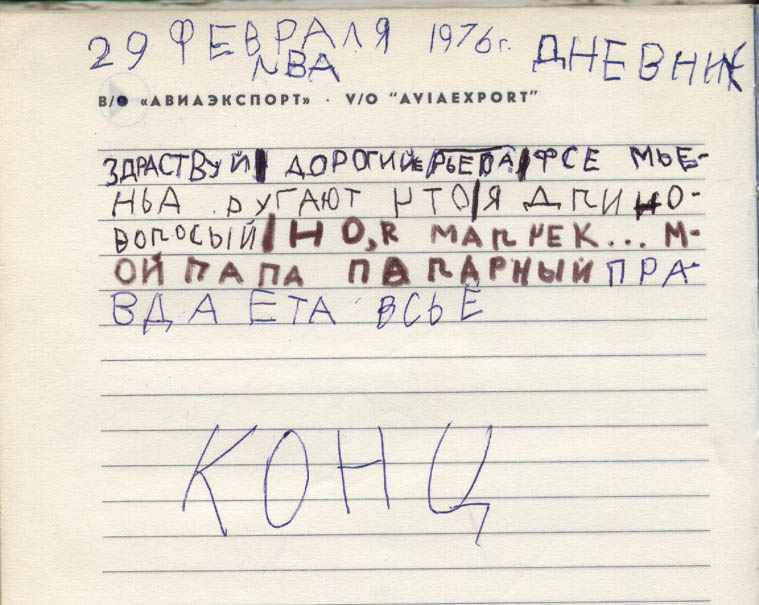 29 ФЕВРАЛЯ 1976г. ДНЕВНИК
ИВА
В/О «АВИАЭКСПОРТ» · V/O "AVIAEXPORT"
ЗДРАСТВУЙ ДОРОГИЙ ФСЕ МЬЕ-
НЬА РУГАЮТ ЧТО Я ДЛИННО-
ВОЛОСЫЙ НО, Я МАЛЧЕК... М-
ОЙ ПАПА ПАПАРНЫЙ ПРА-
ВДА ЕТА ВСЬЕ
КОНЦ